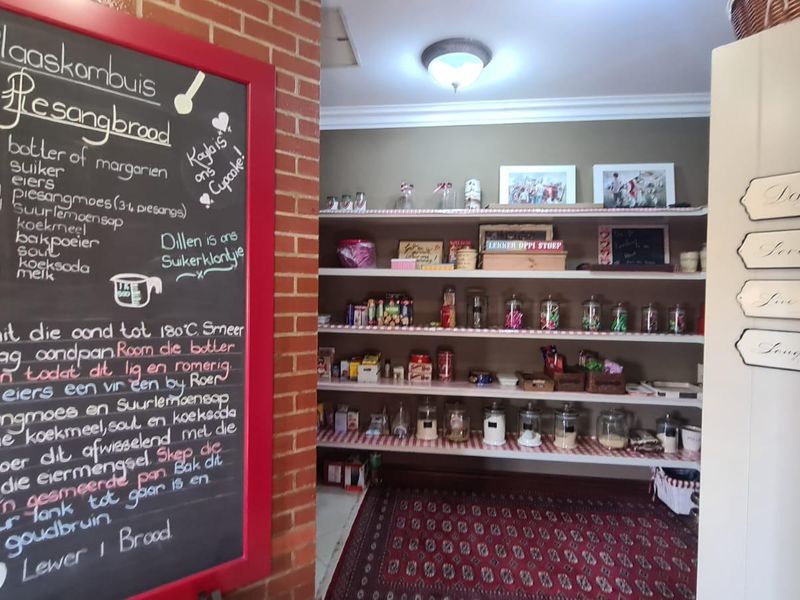 laaskombuis
Piesangbrood
botter of margarien
suiker
eiers
piesangmoes (3-4 piesangs)
suurlemoensap
koekmeel
bakpoeier
sout
koeksoda
melk
Kayla is
ons
Cupcake!
Dillen is ons
Suikerklontjie
it die oond tot 180°C Smeer
oondpan. Room die botter
todat dit lig en romerig.
eiers een vir een by. Roer
en suurlemoensap
koekmeel, sout en koeksoda
oer dit afwisselend met die
die eiermengsel. Skep die
'n gesmeerde pan. Bak dit
lank tot gaar is en
goudbruin.
Lewer 1 Brood
LEKKER OPPI STOEP